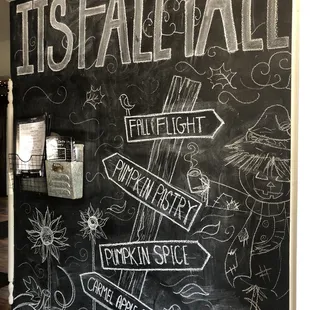 ITS FALL YALL
FALL FLIGHT
PUMPKIN PASTRY
PUMPKIN SPICE
CARMEL APPLE